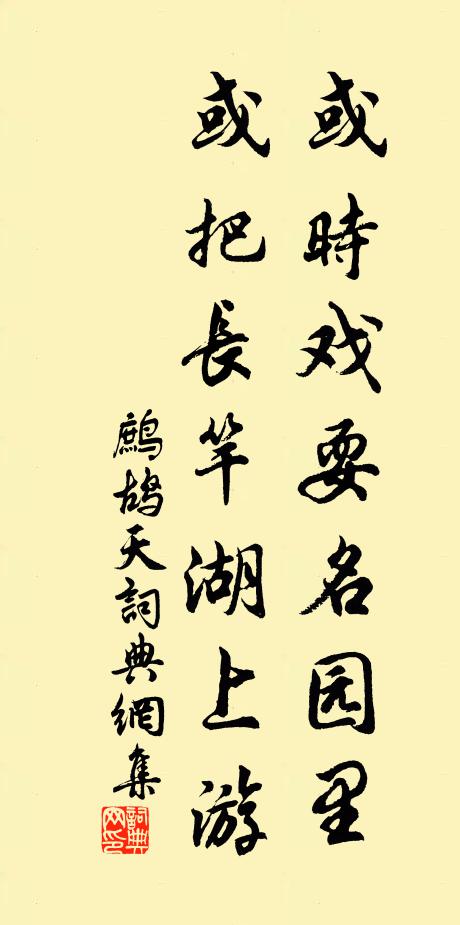 或時戏耍名园里
或把長竿湖上游
鹧鸪天詞典網集
詞典网印